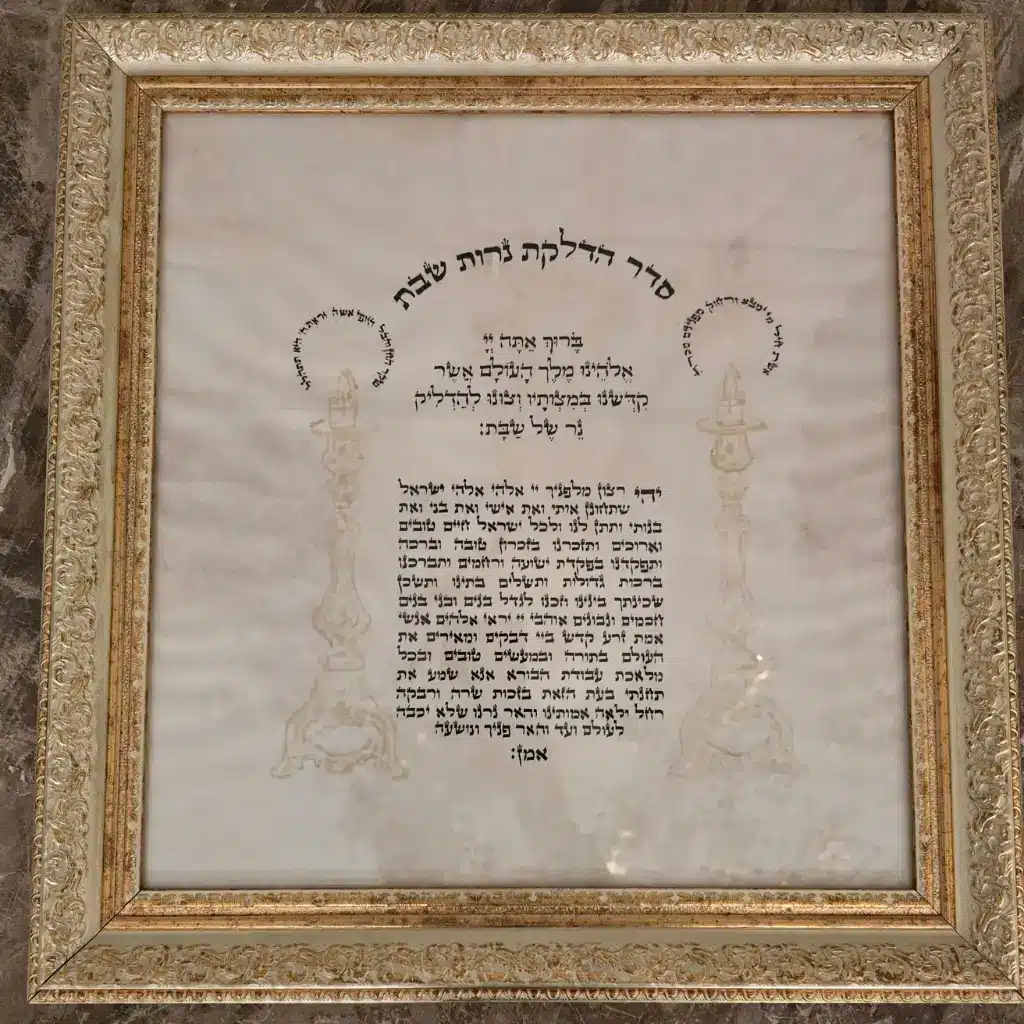 סדר הדלקת נרות שבת
אשת חיל מי ימצא ורחוק מפנינים מכרה
שקר החן והבל היופי אשה יראת ה' היא תתהלל
בָּרוּךְ אַתָּה יְיָ
אֱלֹהֵינוּ מֶלֶךְ הָעוֹלָם אֲשֶׁר
קִדְּשָׁנוּ בְּמִצְוֹתָיו וְצִוָּנוּ לְהַדְלִיק
נֵר שֶׁל שַׁבָּת:
יהי רצון מלפניך יי אלהי אלהי ישראל
שתחונן אותי ואת אישי ואת בני ואת
בנותי ותתן לנו ולכל ישראל חיים טובים
וארוכים ותזכרנו בזכרון טובה וברכה
ותפקדנו בפקדת ישועה ורחמים ותברכנו
ברכות גדולות ותשלים בתינו ותשכן
שכינתך בינינו וזכנו לגדל בנים ובני בנים
חכמים ונבונים אוהבי יי יראי אלהים אנשי
אמת זרע קדש ביי דבקים ומאירים את
העולם בתורה ובמעשים טובים ובכל
מלאכת עבודת הבורא אנא שמע את
תחנתי בעת הזאת בזכות שרה ורבקה
רחל ולאה אמותינו והאר נרנו שלא יכבה
לעולם ועד והאר פניך ונושעה
אמן: